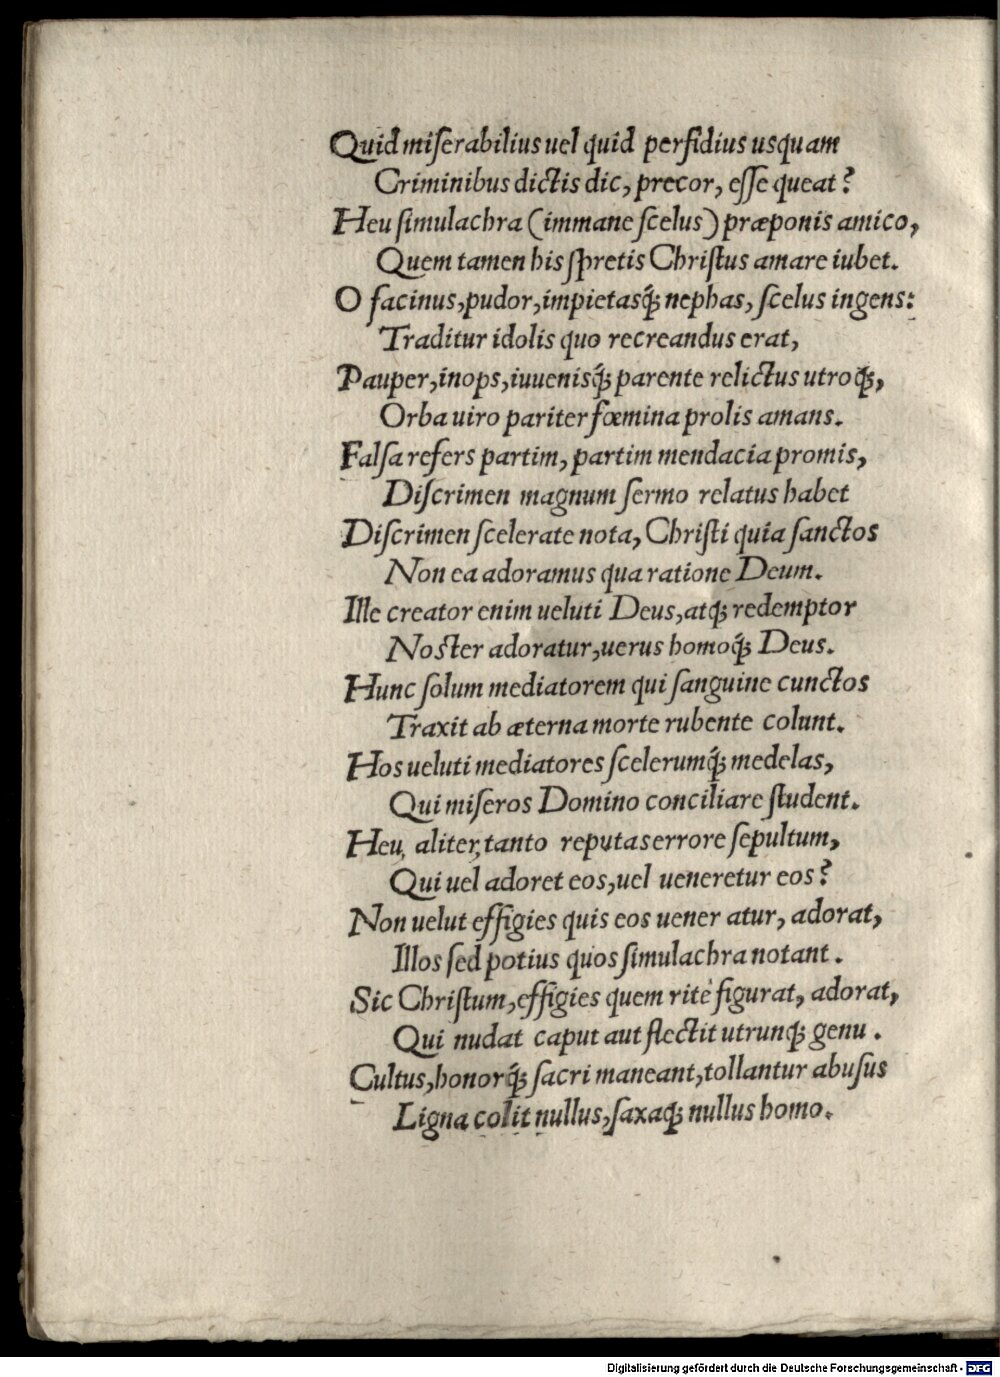 Quid miſerabilius uel quid perfidius usquam
Criminibus dictis dic, precor, eſſe queat?
Heu ſimulachra (immane ſcelus) præponis amico,
Quem tamen his ſpretis Chriſtus amare iubet.
O facinus, pudor, impietasq́ꝫ nephas, ſcelus ingens:
Traditur idolis quo recreandus erat,
Pauper, inops, iuuenisq́ꝫ parente relictus utroq́ꝫ,
Orba uiro pariter fœmina prolis amans.
Falſa refers partim, partim mendacia promis,
Diſcrimen magnum ſermo relatus habet
Diſcrimen ſcelerate nota, Chriſti quia ſanctos
Non ea adoramus qua ratione Deum.
Ille creator enim ueluti Deus, atqꝫ redemptor
Noſter adoratur, uerus homoq́ꝫ Deus.
Hunc ſolum mediatorem qui ſanguine cunctos
Traxit ab æterna morte rubente colunt.
Hos ueluti mediatores ſcelerumq́ꝫ medelas,
Qui miſeros Domino conciliare ſtudent.
Heu, aliter, tanto reputas errore ſepultum,
Qui uel adoret eos, uel ueneretur eos?
Non uelut effigies quis eos uener atur, adorat,
Illos ſed potius quos ſimulachra notant.
Sic Chriſtum, effigies quem ritè figurat, adorat,
Qui nudat caput aut flectit utrunqꝫ genu.
Cultus, honorq́ꝫ ſacri maneant, tollantur abuſus
Ligna colit nullus, ſaxaqꝫ nullus homo.
Digitalisierung gefördert durch die Deutsche Forschungsgemeinschaft - DFG